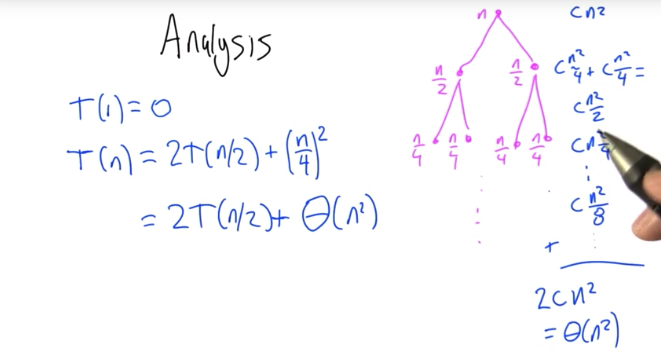 Analysis
T(1) = 0
T(n) = 2T(n/2) + (n/4)²
= 2T(n/2) + Θ(n²)
n
n/2 n/2
n/4 n/4 n/4 n/4
cn²
cn²/4 + cn²/4 =
cn²/2
cn²/4
cn²/8
+
2cn²
= Θ(n²)